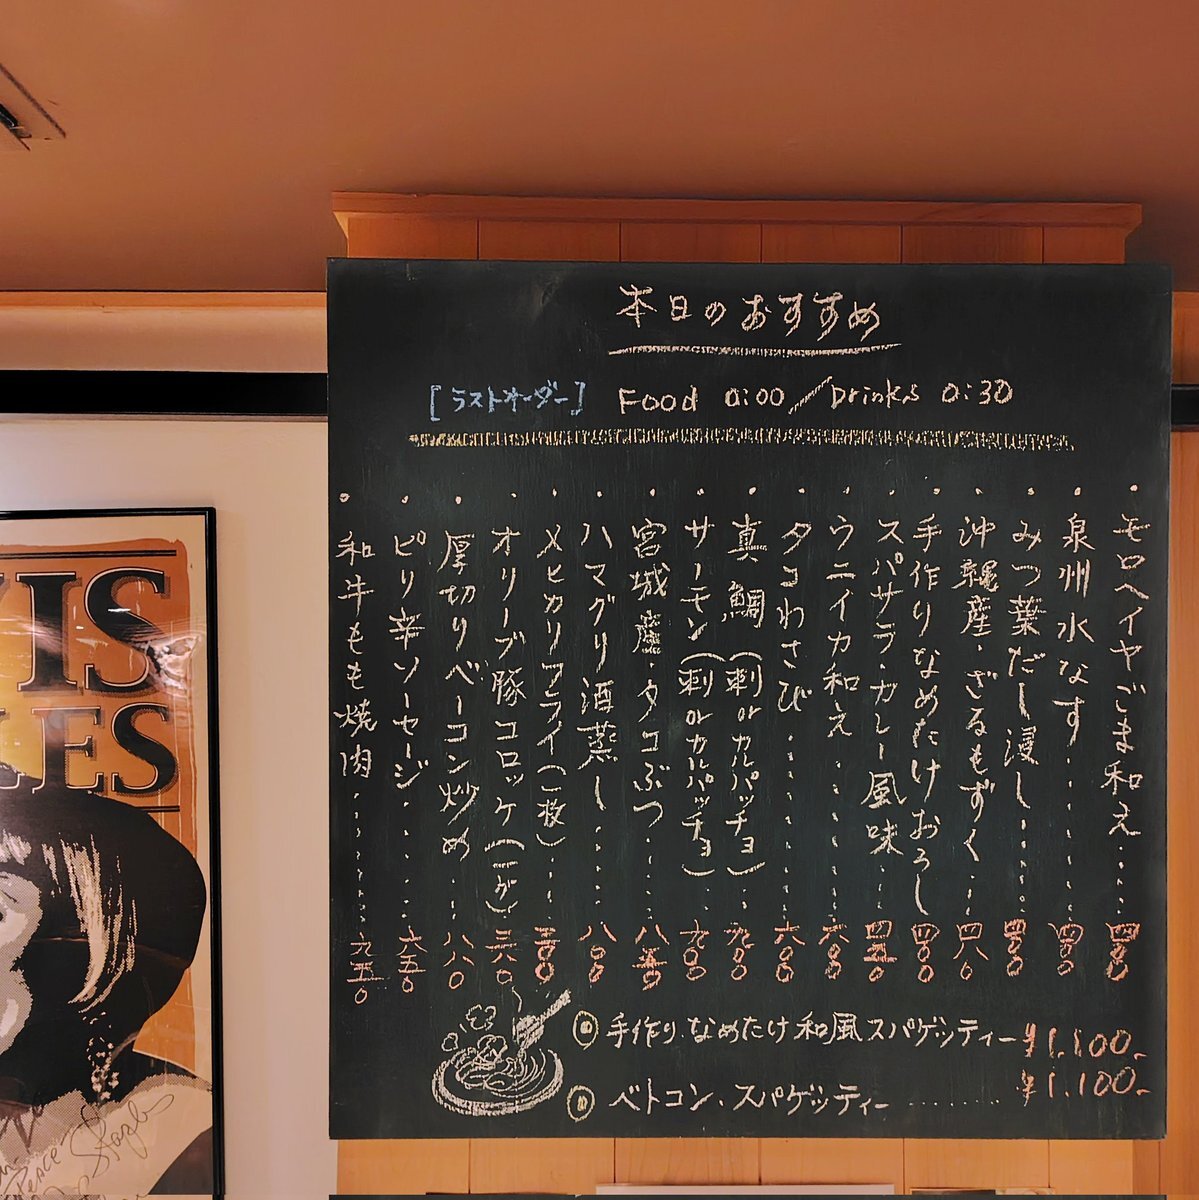 本日のおすすめ
[ラストオーダー] Food 0:00/Drinks 0:30
・モロヘイヤごま和え……四〇〇
・泉州水なす……四〇〇
・みつ葉だし浸し……四〇〇
・沖縄産・ざるもずく……四八〇
・手作りなめたけおろし四〇〇
・スパサラ・カレー風味…四五〇
・ウニイカ和え……六〇〇
・タコわさび……六〇〇
・真鯛(刺orカルパッチョ)…九〇〇
・サーモン(刺orカルパッチョ)…九〇〇
・宮城産・タコぶつ……八五〇
・ハマグリ酒蒸し……八〇〇
・メヒカリフライ(二枚)……三〇〇
・オリーブ豚コロッケ(一ケ)三八〇
・厚切りベーコン炒め…八八〇
・ピリ辛ソーセージ……六五〇
・和牛もも焼肉……九五〇
手作りなめたけ和風スパゲッティー ¥1.100-
ベトコン、スパゲッティー……… ¥1.100-
XIS
LES
Peace